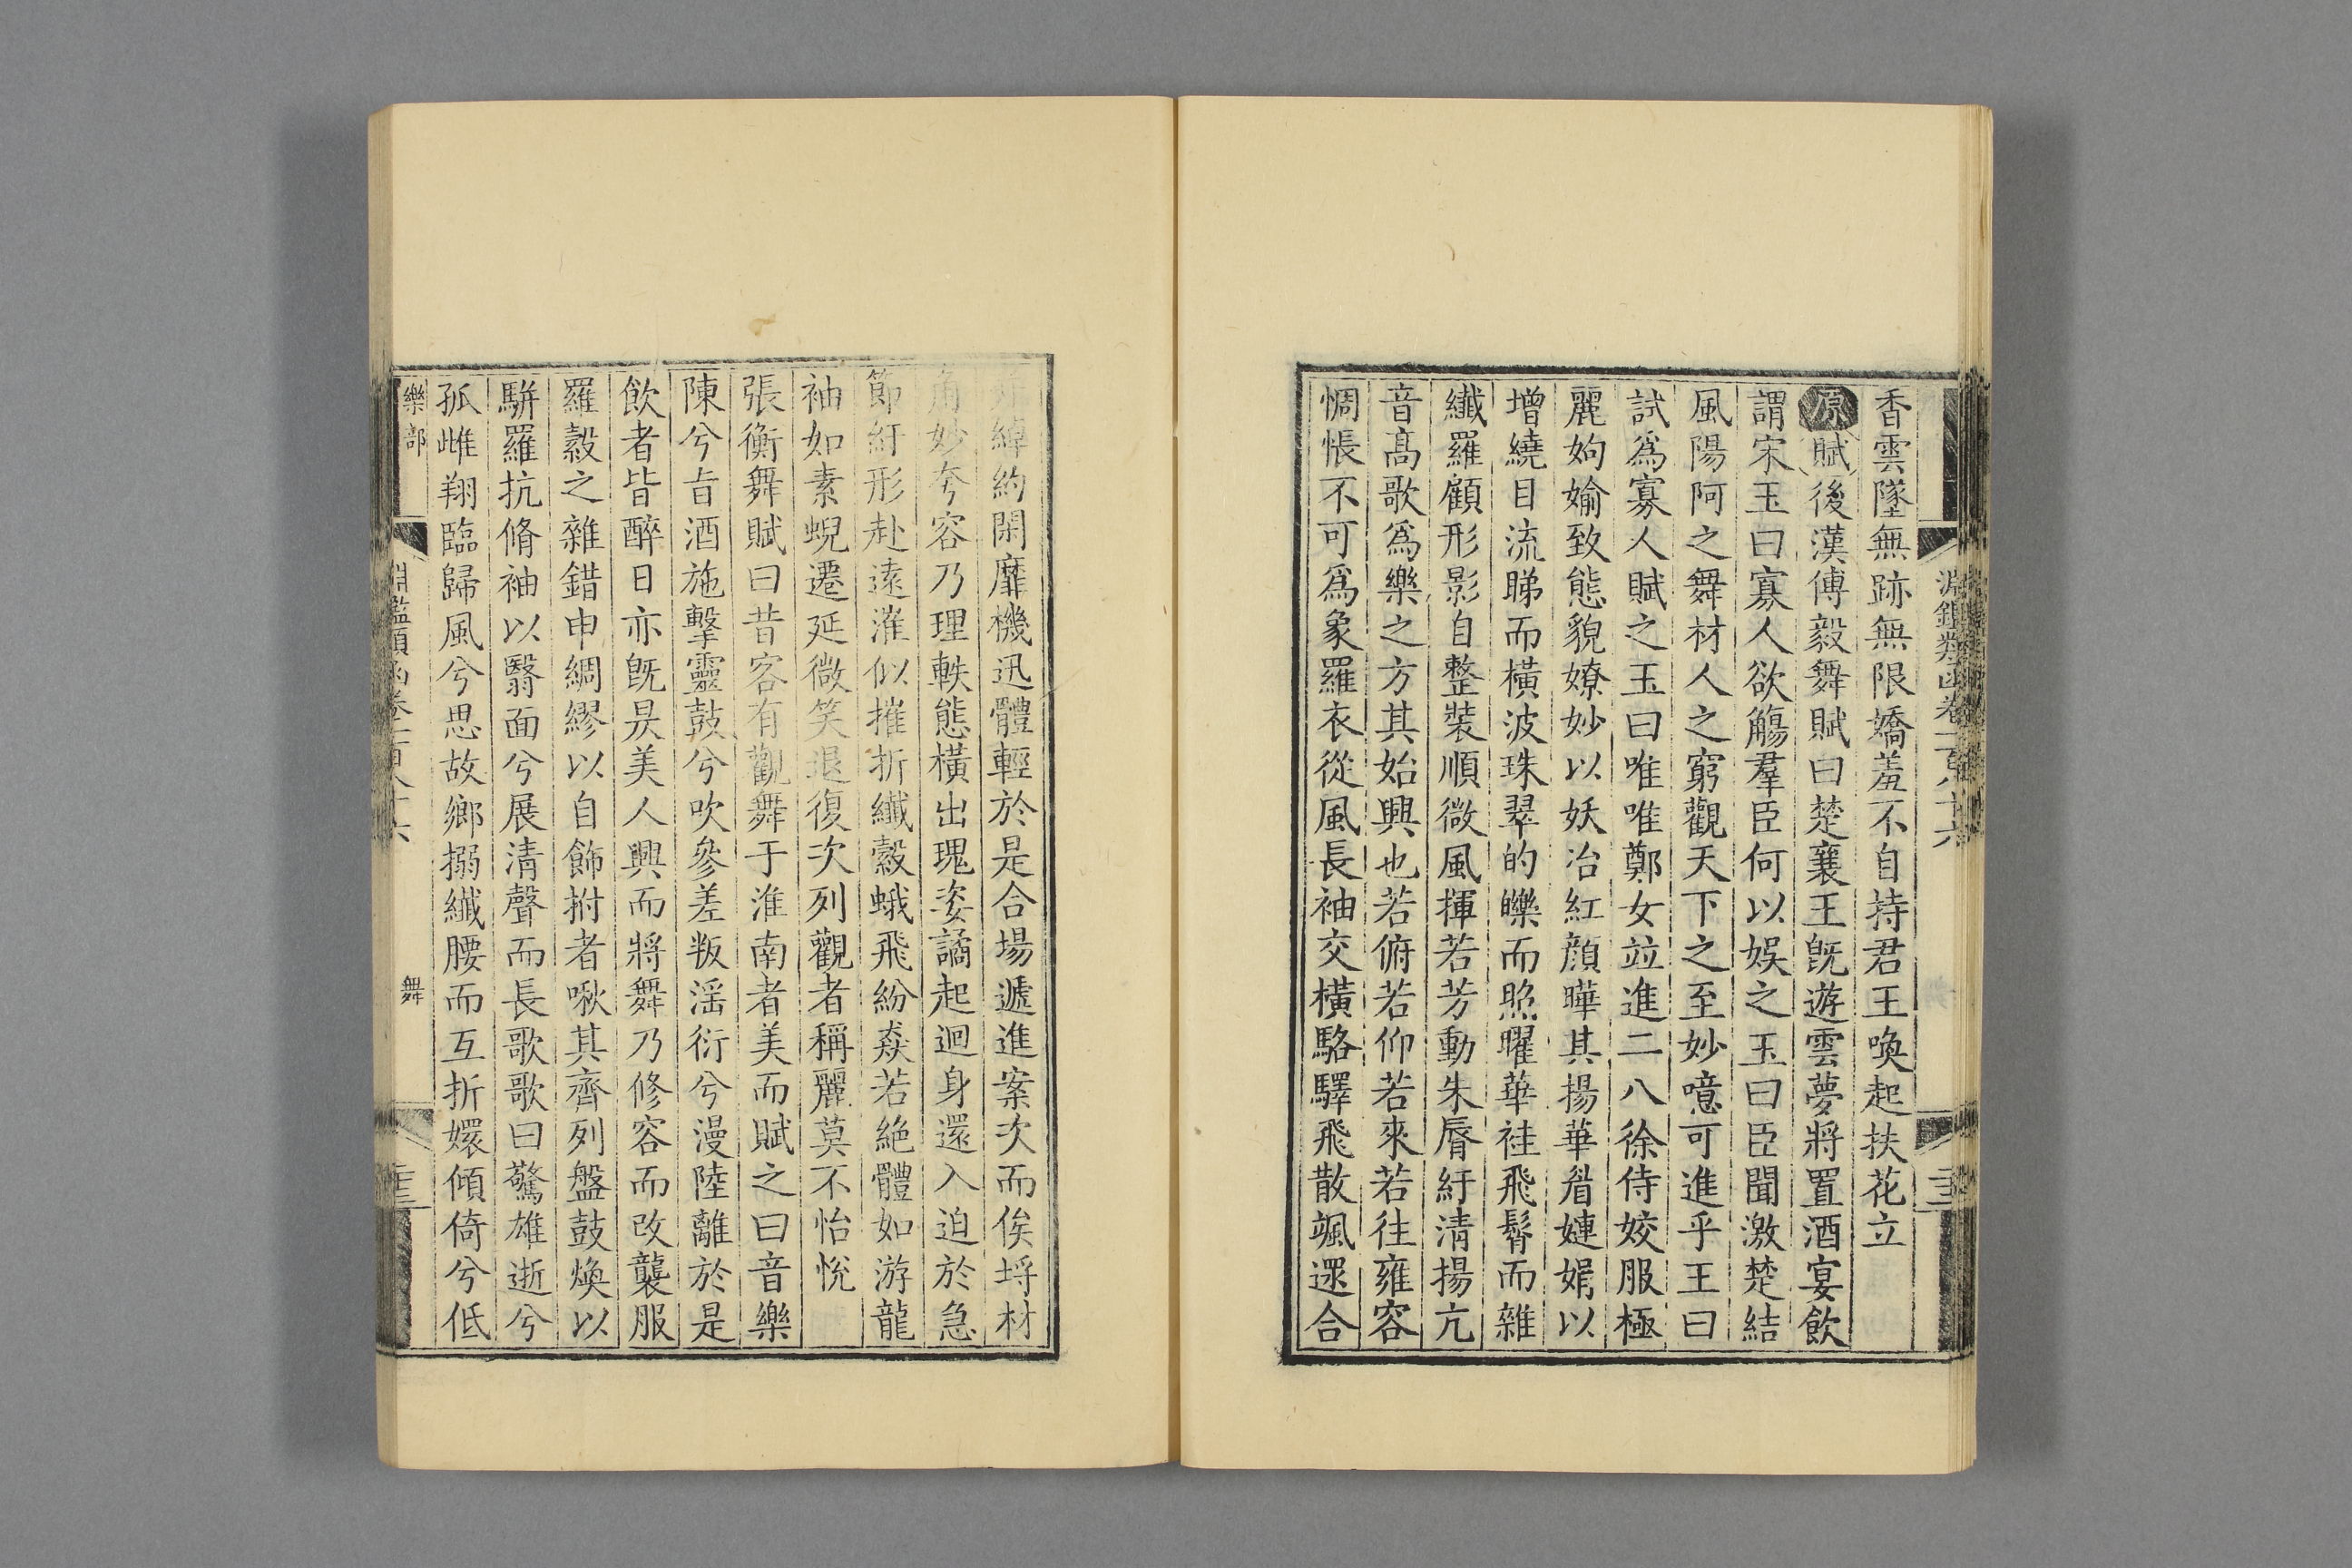 淵鑑類函卷一百八十六
香雲墜無跡無限嬌羞不自持君王喚起扶花立
原賦後漢傅毅舞賦曰楚襄王旣遊雲夢將置酒宴飲
謂宋玉曰寡人欲觴羣臣何以娛之玉曰臣聞激楚結
風陽阿之舞材人之窮觀天下之至妙噫可進乎王曰
試爲寡人賦之玉曰唯唯鄭女竝進二八徐侍姣服極
麗姁媮致態貌嫽妙以妖冶紅顔曄其揚華眉㜻娟以
增繞目流睇而橫波珠翠的皪而照曜華袿飛髾而雜
纖羅顧形影自整裝順微風揮若芳動朱脣紆清揚亢
音高歌爲樂之方其始興也若俯若仰若來若往雍容
惆悵不可爲象羅衣從風長袖交橫駱驛飛散颯遝合
綽約閑靡機迅體輕於是合場遞進案次而俟埓材
角妙夸容乃理軼態橫出瑰姿譎起迴身還入迫於急
節紆形赴遠漼似摧折纖縠蛾飛紛猋若絕體如游龍
袖如素蜺遷延微笑退復次列觀者稱麗莫不怡悅
張衡舞賦曰昔客有觀舞于淮南者美而賦之曰音樂
陳兮旨酒施擊靈鼓兮吹參差叛淫衍兮漫陸離於是
飲者皆醉日亦旣昃美人興而將舞乃修容而改襲服
羅縠之雜錯申綢繆以自飾拊者啾其齊列盤鼓煥以
駢羅抗脩袖以翳面兮展清聲而長歌歌曰驚雄逝兮
孤雌翔臨歸風兮思故鄉搦纖腰而互折嬛傾倚兮低
樂部 淵鑑類函卷一百八十六 舞